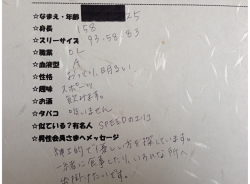 ☆なまえ・年齢 25
☆身長 158
☆スリーサイズ 93.58.83
☆職業 OL
☆血液型 A
☆性格 おっとり、明るい
☆趣味 スポーツ
☆お酒 飲めます。
☆タバコ 吸いません
☆似ている？有名人 SPEEDのエリコ
☆男性会員さまへメッセージ
紳士的で優しい方を探しています。
一緒に食事したり、いろんな所へ
お出掛けたいです。